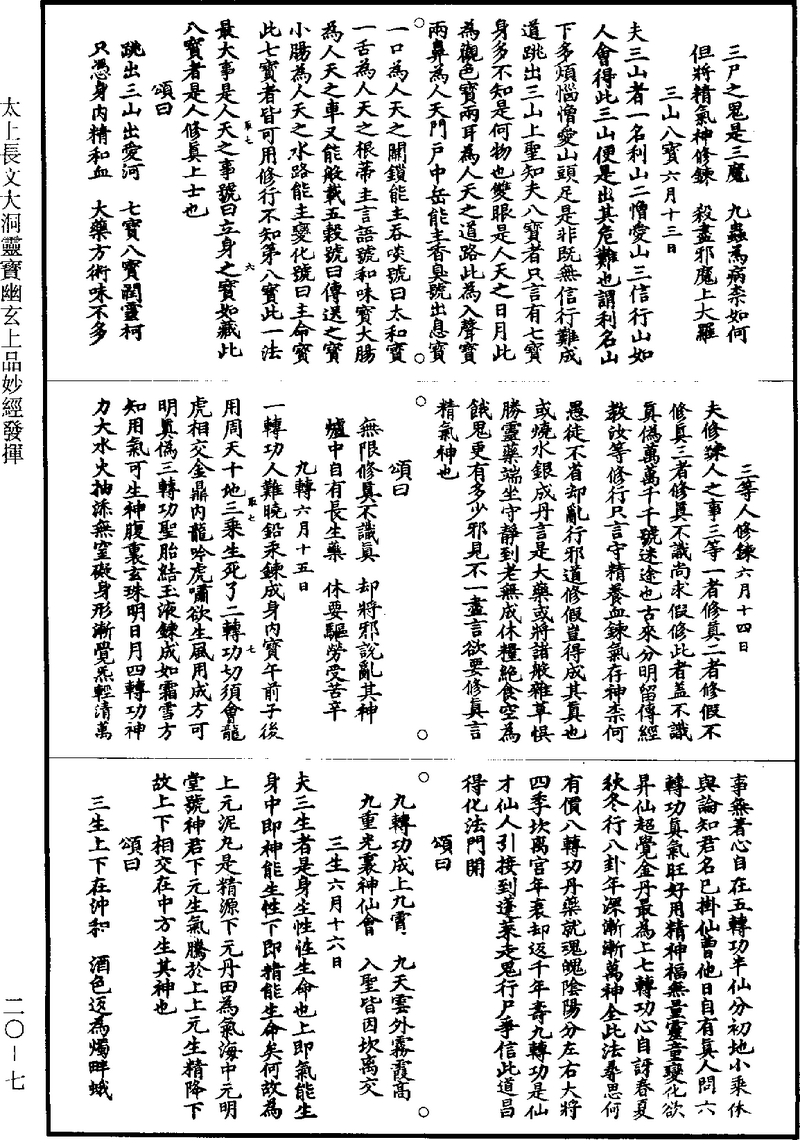 太上長文大洞靈寶幽玄上品妙經發揮
二〇-七
三尸之鬼是三魔　九蟲為病柰如何
但將精氣神修鍊　殺盡邪魔上大羅
三山八寶六月十三日
夫三山者一名利山二憎愛山三信行山如
人會得此三山便是出其危難也謂利名山
下多煩惱憎愛山頭足是非既無信行難成
道跳出三山上聖知夫八寶者只言有七寶
身多不知是何物也雙眼是人天之日月此
為觀色寶兩耳為人天之道路此為入聲寶
兩鼻為人天門戶中岳能主香臭號出息寶
一口為人天之關鎖能主吞啖號曰太和寶
一舌為人天之根蒂主言語號和味寶大腸
為人天之車又能般載五穀號曰傳送之寶
小腸為人天之水路能主變化號曰主命寶
此七寶者皆可用修行不知第八寶此一法
最大事是人天之事號曰立身之寶如藏此
八寶者是人修真上士也
頌曰
跳出三山出愛河　七寶八寶潤靈柯
只憑身內精和血　大藥方術味不多
三等人修鍊六月十四日
夫修鍊人之事三等一者修真二者修假不
修真三者修真不識尚求假修此者蓋不識
真偽萬萬千千號迷途也古來分明留傳經
教汝等修行只言守精養血鍊氣存神柰何
愚徒不省却亂行邪道修假豈得成其真也
或燒水銀成丹言是大藥或將諸般雜草悞
勝靈藥端坐守靜到老無成休糧絕食空為
餓鬼更有多少邪見不一盡言欲要修真言
精氣神也
頌曰
無限修真不識真　却將邪說亂其神
爐中自有長生藥　休要驅勞受苦辛
九轉六月十五日
一轉功人難曉鉛汞鍊成身內寶午前子後
用周天十地三乘生死了二轉功切須會龍
虎相交金鼎內龍吟虎嘯欲生風用成方可
明真偽三轉功聖胎結玉液鍊成如霜雪方
知用氣可生神腹裏玄珠明日月四轉功神
力大水火抽添無窒礙身形漸覺炁輕清萬
事無著心自在五轉功半仙分初地小乘休
與論知君名已掛仙曹他日自有真人問六
轉功真氣旺好用精神福無量靈童變化欲
昇仙超覺金丹最為上七轉功心自訝春夏
秋冬行八卦年深漸漸萬神全此法尋思何
有價八轉功丹藥就魂魄陰陽分左右大將
四季坎离宮年衰却返千年壽九轉功是仙
才仙人引接到蓬萊走鬼行尸爭信此道昌
得化法門開
頌曰
九轉功成上九霄　九天雲外霧霞高
九重光裏神仙會　入聖皆因坎离交
三生六月十六日
夫三生者是身生性性生命也上即氣能生
身中即神能生性下即精能生命矣何故為
上元泥丸是精源下元丹田為氣海中元明
堂號神君下元生氣騰於上上元生精降下
故上下相交在中方生其神也
頌曰
三生上下在沖和　酒色返為燭畔蛾